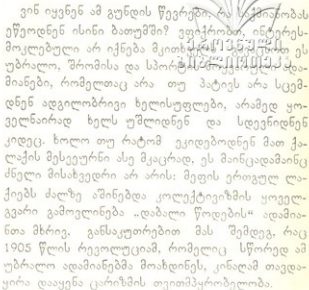 ვინ იყვნენ ამ გუნდის წევრები, რა საქმიანობას
ეწეოდნენ ისინი ბათუმში? ვფიქრობთ, ინტერეს-
მოკლებული არ იქნება მკითხველისათვის ეს
უბრალო, შრომისა და სპორტის ადა-
მიანები, რომელთაც არა თუ პატივს არ სცემ-
დნენ ადგილობრივი ხელისუფლები, არამედ ყო-
ველნაირად ხელს უშლიდნენ და სდევნიდნენ
კიდეც. ხოლო თუ რატომ ეკიდებოდნენ მათ ქა-
ლაქის მესვეურნი ასე მკაცრად, ეს მაინცადამაინც
ძნელი მისახვედრი არ არის: მეფის ერთგულ ლა-
ქიებს ძალზე აშინებდა კოლექტივიზმის ყოველ-
გვარი გამოვლინება „დაბალი წოდების“ ადამია-
ნთა მხრივ, განსაკუთრებით მას შემდეგ, რაც
1905 წლის რევოლუციამ, რომელიც სწორედ ამ
უბრალო ადამიანებმა მოახდინეს, კინაღამ თავდა-
ყირა დააყენა ცარიზმის თვითმპყრობელობა.